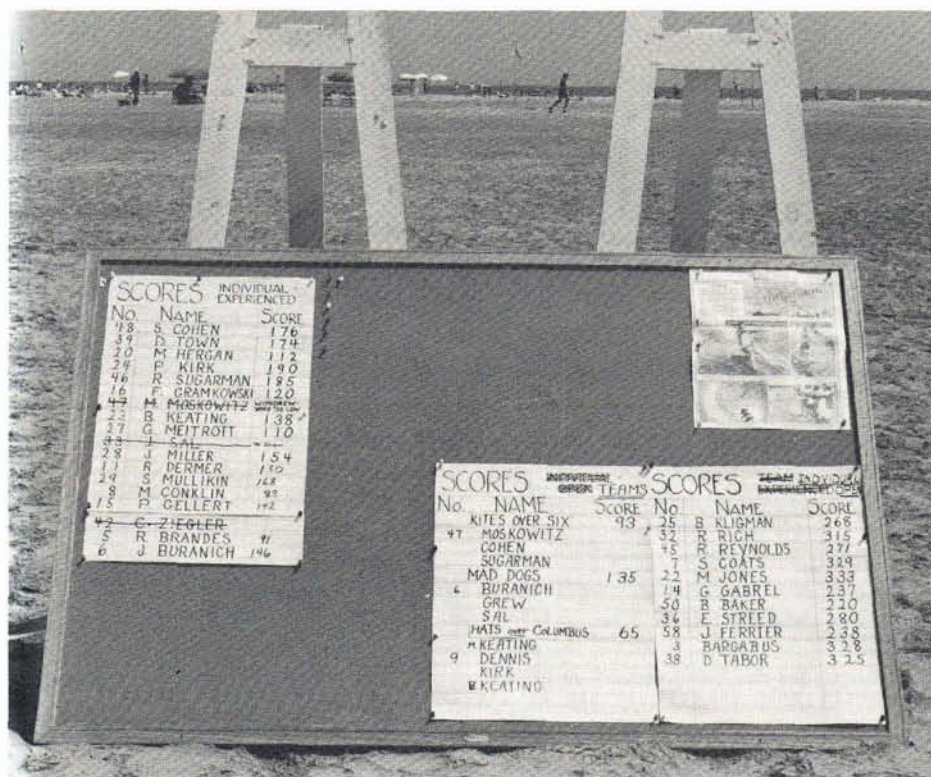 SCORES INDIVIDUAL
EXPERIENCED
No. NAME SCORE
48 S. COHEN 176
39 D. TOWN 174
20 M HERGAN 112
24 P KIRK 190
46 R SUGARMAN 185
16 F. GRAMKOWSKI 120
47 M. MOSKOWITZ WITHDREW
23 B. KEATING 138
27 G. MEITROTT 110
33 J. SAL
28 J. MILLER 154
11 R DERMER 130
29 S MULLIKIN 168
8 M CONKLIN 83
15 P GELLERT 142
42 C. ZIEGLER
5 R BRANDES 91
6 J. BURANICH 146
SCORES INDIVIDUAL
OPEN TEAMS
No. NAME SCORE
KITES OVER SIX 93
47 MOSKOWITZ
COHEN
SUGARMAN
MAD DOGS 135
6 BURANICH
GREW
SAL
HATS over COLUMBUS 65
M KEATING
9 DENNIS
KIRK
B KEATING
SCORES TEAM INDIVIDUAL
EXPERIENCED
No. NAME SCORE
25 B KLIGMAN 268
52 R RICH 315
45 R. REYNOLDS 271
7 S COATS 329
22 M JONES 333
14 G GABREL 237
50 B BAKER 220
36 E STREED 280
58 J. FERRIER 238
3 BARGABUS 328
38 D TABOR 325